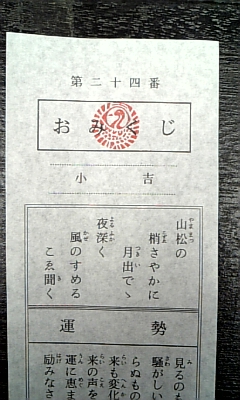 第二十四番
おみくじ
小吉
山松の
梢さやかに
月出でゝ
夜深く
風のすめる
こゑ聞く
運勢
見るのも
騒がしい
らぬもの
来も変化
来の声を
運に恵ま
励みなさ